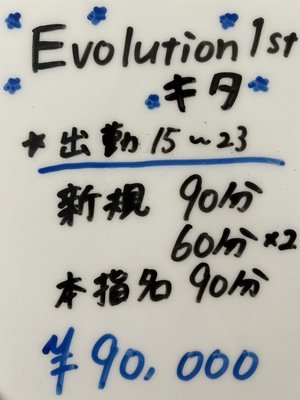 Evolution 1st
キタ
* 出勤 15~23
新規 90分
60分×2
本指名 90分
¥90,000